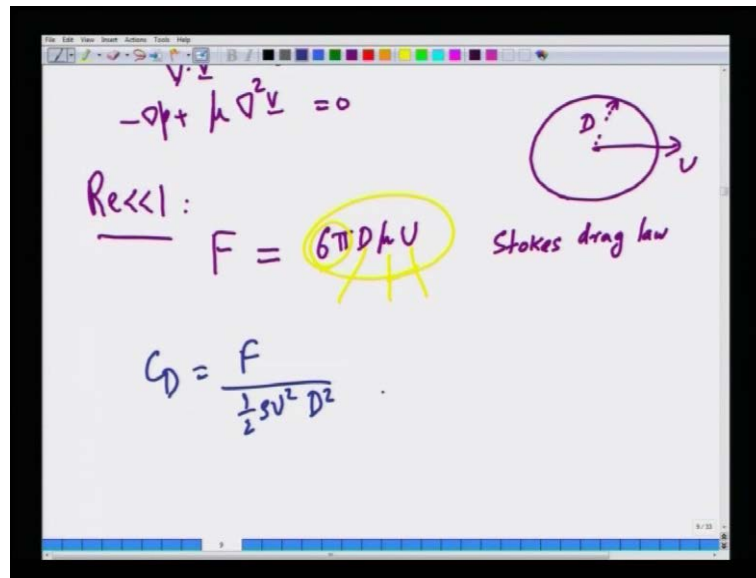 File Edit View Insert Actions Tools Help
∇·v
-∇p + μ ∇²v = 0
D
U
Re<<1:
F = 6π D μ U
Stokes drag law
C_D = F / (1/2 ρU² D²)
9/33
9